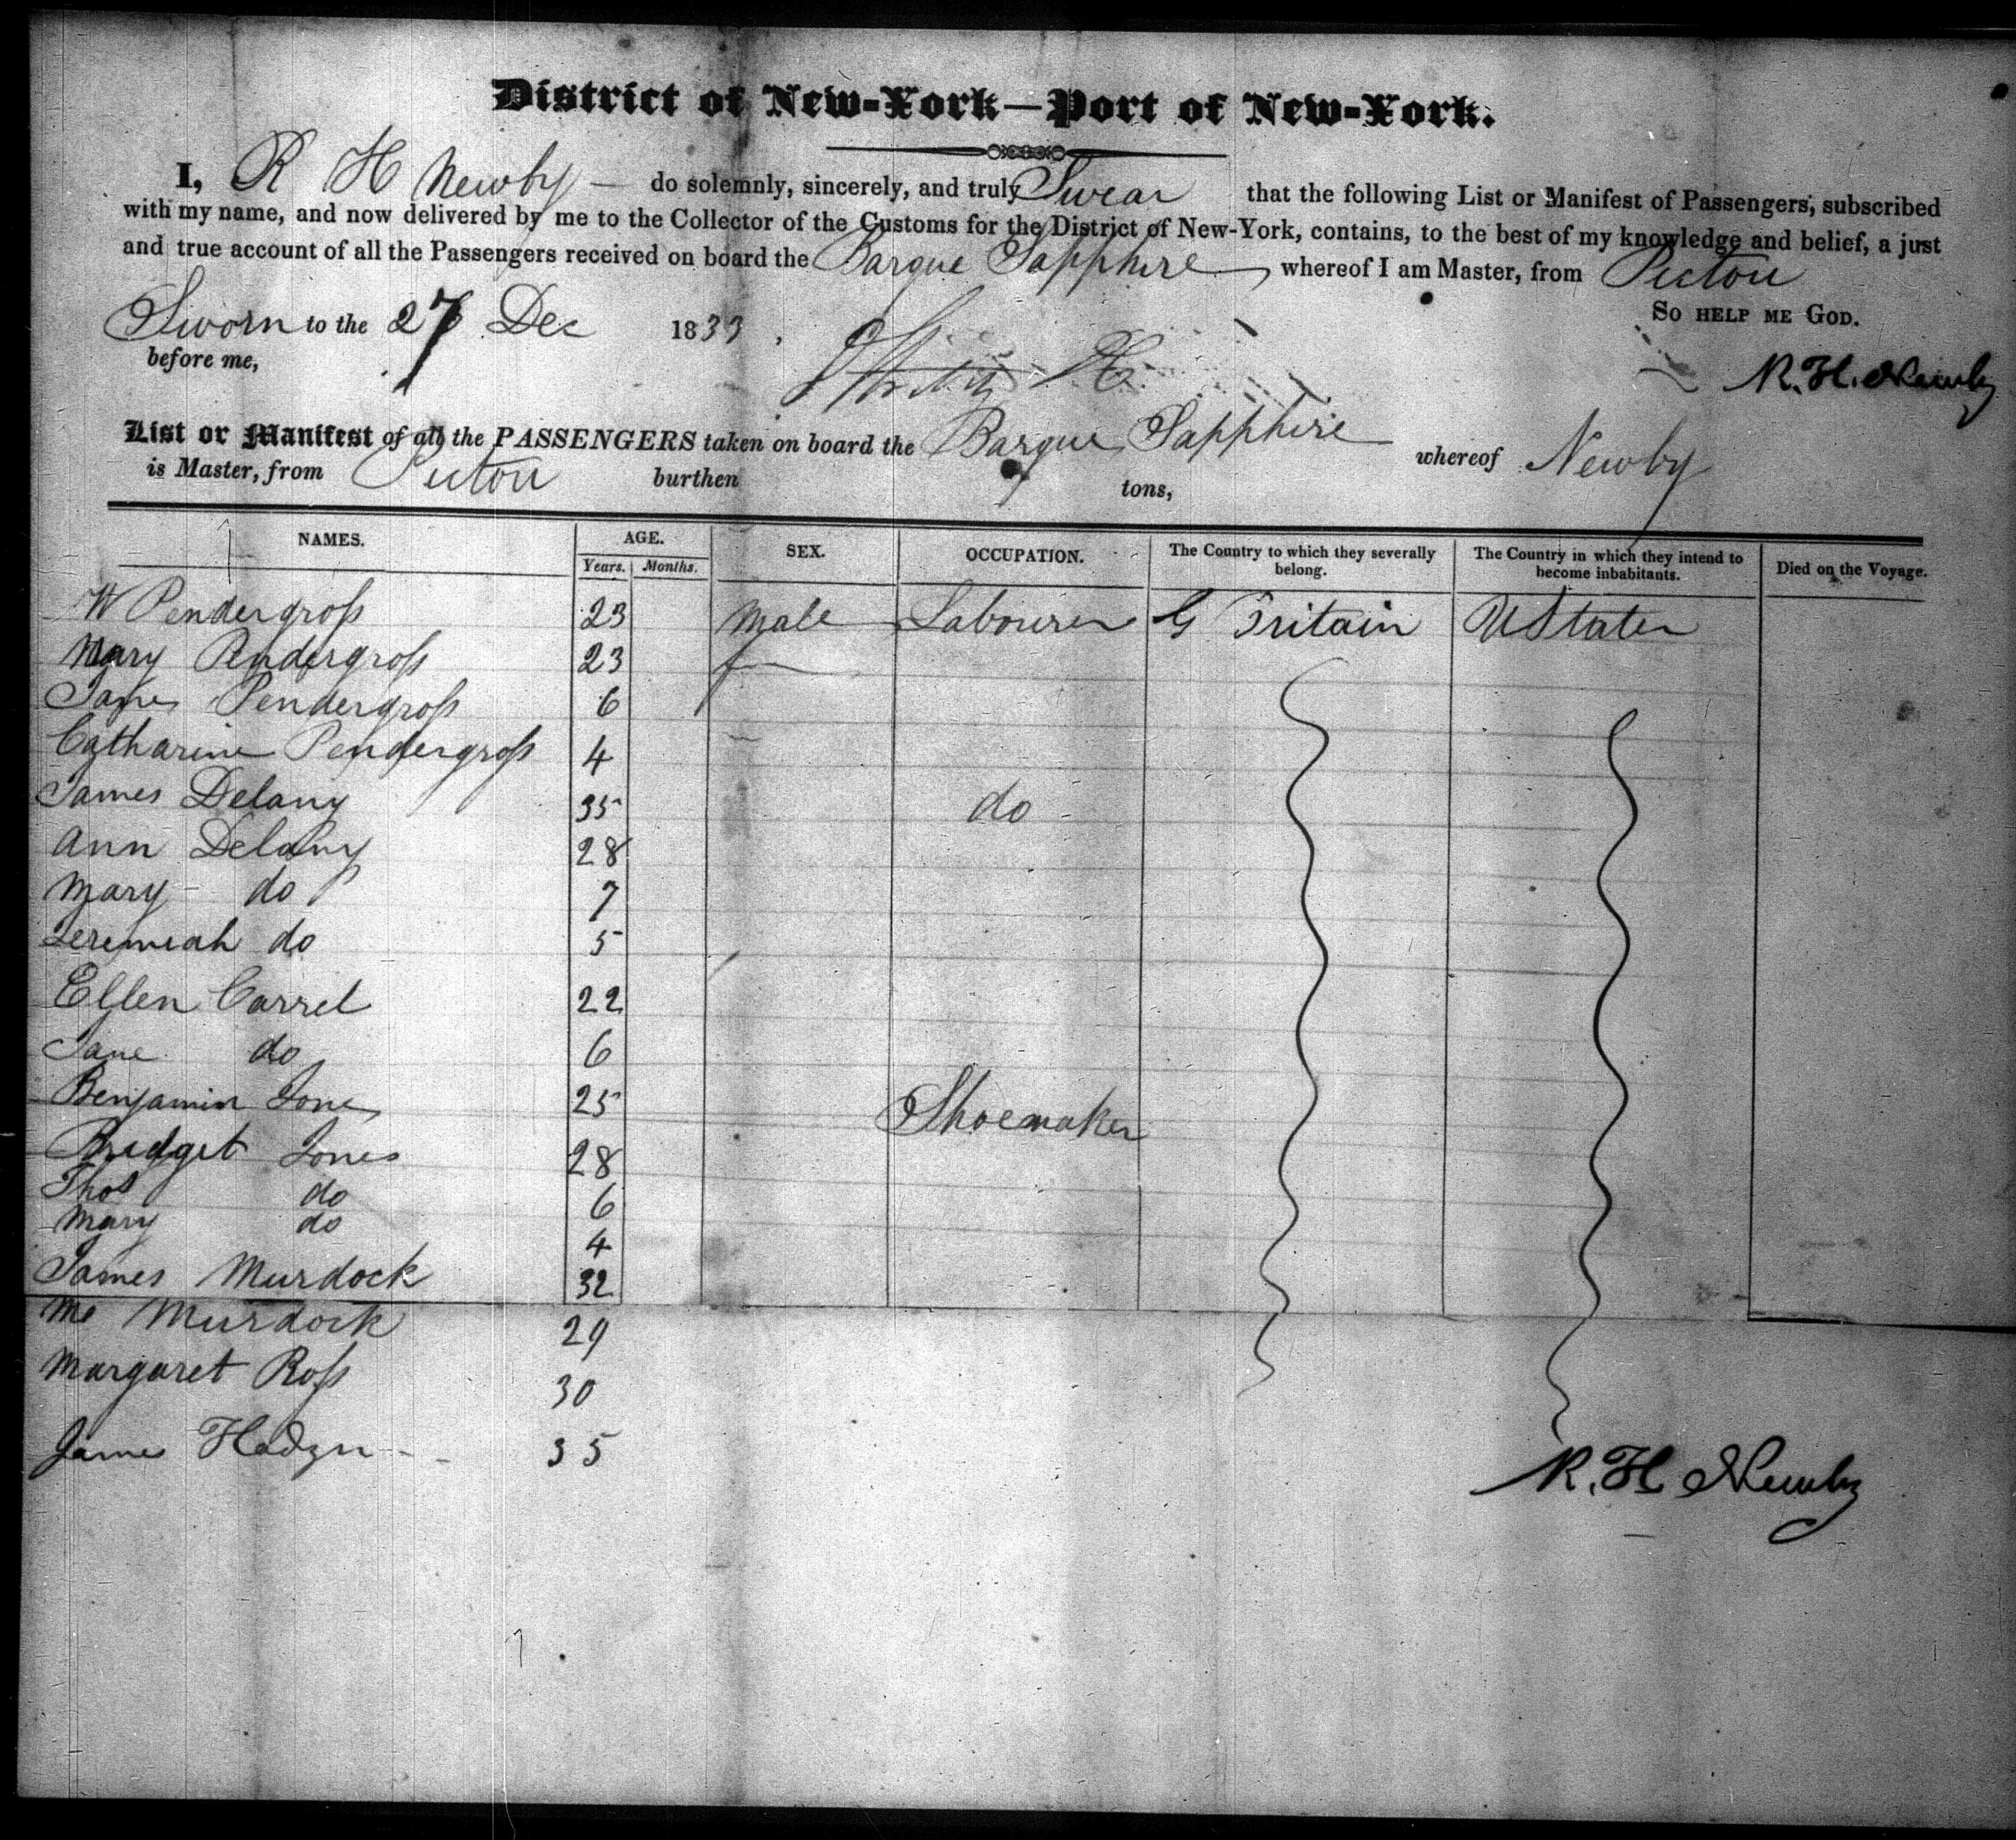 District of New-York—Port of New-York.
I, R H Newby — do solemnly, sincerely, and truly Swear that the following List or Manifest of Passengers, subscribed
with my name, and now delivered by me to the Collector of the Customs for the District of New-York, contains, to the best of my knowledge and belief, a just
and true account of all the Passengers received on board the Barque Sapphire whereof I am Master, from Pictou
So help me God.
Sworn to the 27 Dec 1833,
before me,
R. H. Newby
List or Manifest of all the PASSENGERS taken on board the Barque Sapphire whereof Newby
is Master, from Pictou burthen tons,
NAMES. AGE. SEX. OCCUPATION. The Country to which they severally belong. The Country in which they intend to become inhabitants. Died on the Voyage.
Years. Months.
W Pendergross 23 Male Labourer G Britain U States
Mary Pendergross 23
James Pendergross 6
Catharine Pendergross 4
James Delany 35 do
Ann Delany 28
Mary do 7
Jeremiah do 5
Ellen Carrel 22
Jane do 6
Benjamin Jones 25 Shoemaker
Bridget Jones 28
Thos do 6
Mary do 4
James Murdock 32
Murdock 29
Margaret Ross 30
James 35
R. H Newby